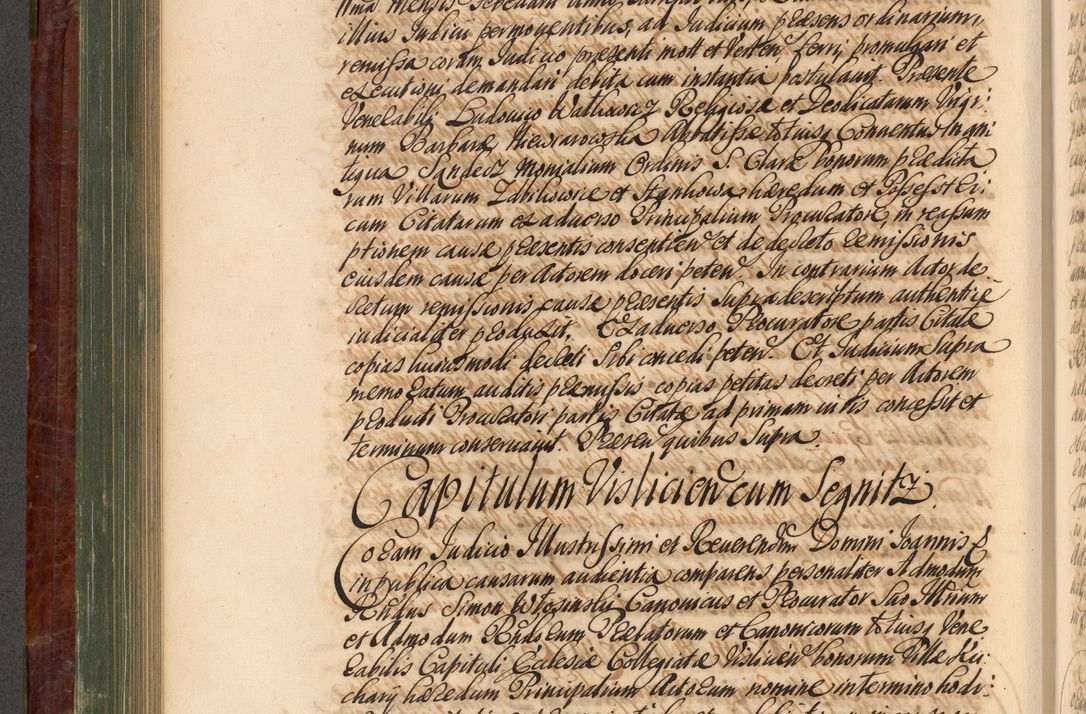 illius Judicii permoventibus, ad Judicium præsens ordinarium,
remissa coram Judicio præsenti mott et Verten̄ ferri, promulgari et
executioni demandari debita cum instantia postulavit. Præsente
Venerabili Ludovico Walkowicz Religiosæ et Deo dicatarum Virgi:
num Barbaræ Abbatissæ totiusq Conventus in an:
tiqua Sandecz Monialium Ordinis S. Claræ bonorum prædicta
rum Villarum Zabilowice et Stanhowa hæredum et Possestri:
cum Citatarum ex adverso Principalium Procuratore, in reassum
ptionem causæ præsentis consentien̄ et de decreto remissionis
eiusdem causæ per Actorem doceri peten̄. In contrarium Actor de
cretum remissionis causæ præsentis supradescriptum authenticè
iudicialiter produxit. Ex adverso Procuratore partis Citatæ
copias huiusmodi decreti sibi concedi peten̄. Et Judicium supra
memoratum auditis præmissis copias petitas decreti per Actorem
producti Procuratori partis Citatæ ad primam iuris concessit et
terminum conservavit. Præsen̄ quibus supra.
Capitulum Vislicien̄ cum Segnitz
Coram Judicio Illustrissimi et Reverendm̄ Domini Joannis P
in publica causarum audientia comparens personaliter Admodum
Rndus Simon Canonicus et Procurator suo Mrium
et Admodum Rndorum Prælatorum et Canonicorum totiusq Vene
rabilis Capituli Ecclesiæ Collegiatæ Vislicien̄ bonorum Villæ Ku:
chary hæredum Principalium Actorum nomine in termino hodi: